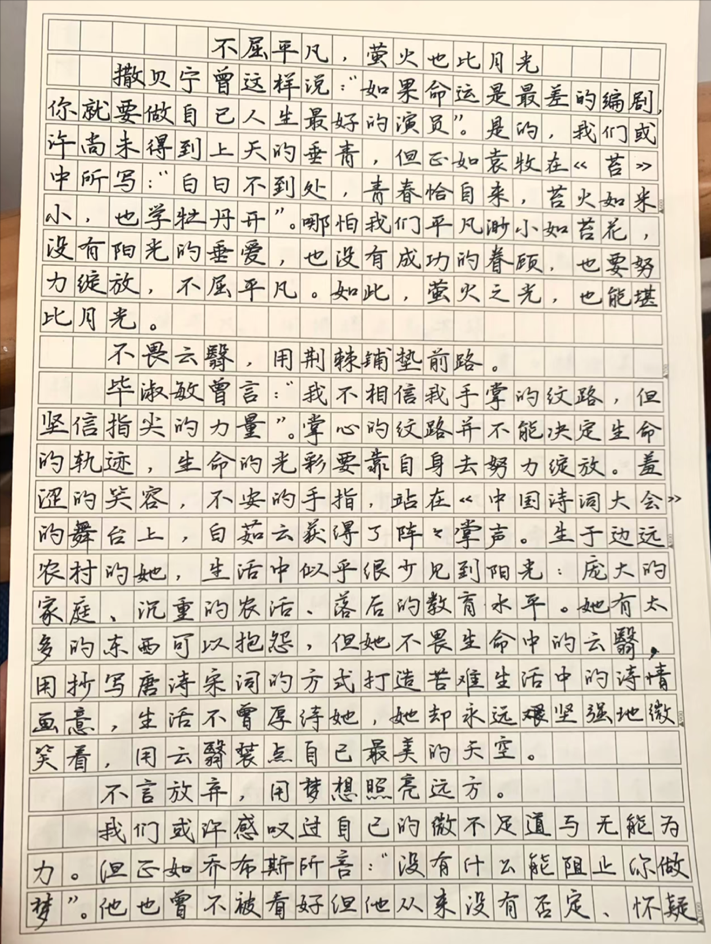 不屈平凡，萤火也比月光
撒贝宁曾这样说：“如果命运是最差的编剧，
你就要做自己人生最好的演员”。是的，我们或
许尚未得到上天的垂青，但正如袁牧在《苔》
中所写：“白日不到处，青春恰自来，苔火如米
小，也学牡丹开”。哪怕我们平凡渺小如苔花，
没有阳光的垂爱，也没有成功的眷顾，也要努
力绽放，不屈平凡。如此，萤火之光，也能堪
比月光。
不畏云翳，用荆棘铺垫前路。
毕淑敏曾言：“我不相信我手掌的纹路，但
坚信指尖的力量”。掌心的纹路并不能决定生命
的轨迹，生命的光彩要靠自身去努力绽放。羞
涩的笑容，不安的手指，站在《中国诗词大会》
的舞台上，白茹云获得了阵々掌声。生于边远
农村的她，生活中似乎很少见到阳光：庞大的
家庭、沉重的农活、落后的教育水平。她有太
多的东西可以抱怨，但她不畏生命中的云翳，
用抄写唐诗宋词的方式打造苦难生活中的诗情
画意，生活不曾厚待她，她却永远坚强地微
笑着，用云翳装点自己最美的天空。
不言放弃，用梦想照亮远方。
我们或许感叹过自己的微不足道与无能为
力。但正如乔布斯所言：“没有什么能阻止你做
梦”。他也曾不被看好但他从来没有否定、怀疑